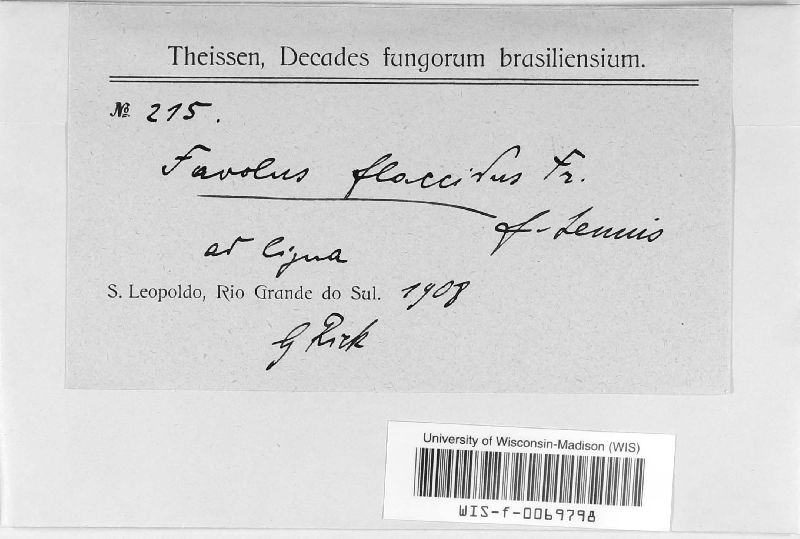 Theissen, Decades fungorum brasiliensium.
№ 215.
Favolus flaccidus Fr.
f. tenuis
ad ligna
S. Leopoldo, Rio Grande do Sul. 1908
Rick
University of Wisconsin-Madison (WIS)
WIS-f-0069798